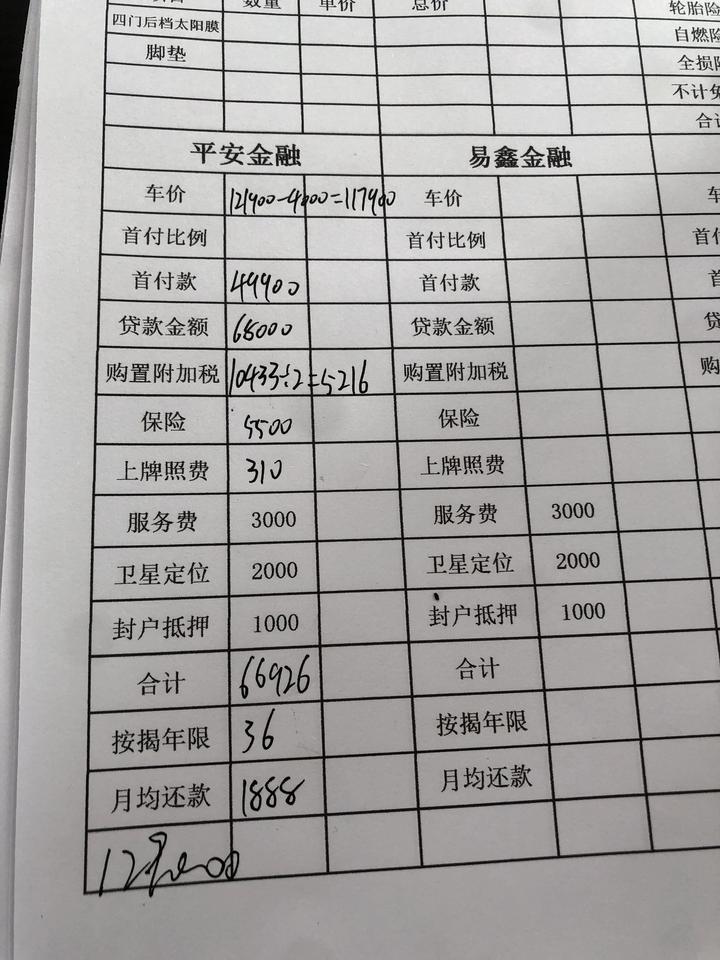 数量 单价 总价 轮胎险
四门后档太阳膜 自燃险
脚垫 全损险
不计免
合计
平安金融 易鑫金融
车价 121900-4000=117900 车价
首付比例 首付比例 首付
首付款 49900 首付款 首
贷款金额 68000 贷款金额 贷
购置附加税 10433÷2=5216 购置附加税 购
保险 5500 保险
上牌照费 310 上牌照费
服务费 3000 服务费 3000
卫星定位 2000 卫星定位 2000
封户抵押 1000 封户抵押 1000
合计 66926 合计
按揭年限 36 按揭年限
月均还款 1888 月均还款